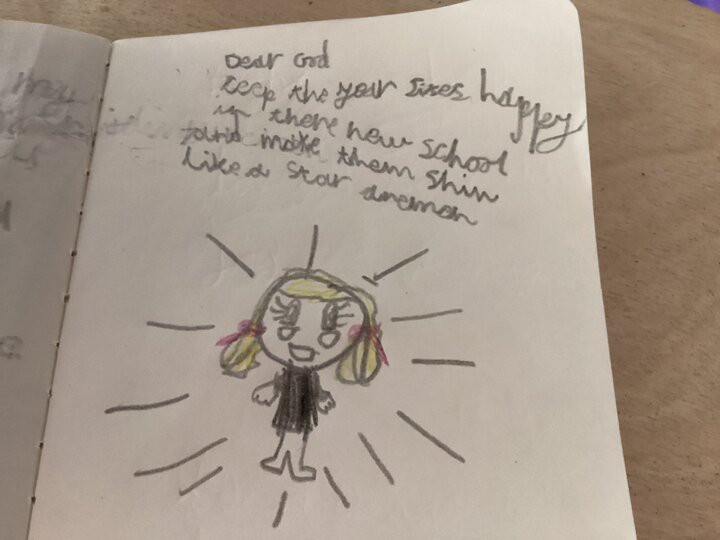 Dear God
keep the year sixes happy
in there new school
and make them shin
like a star